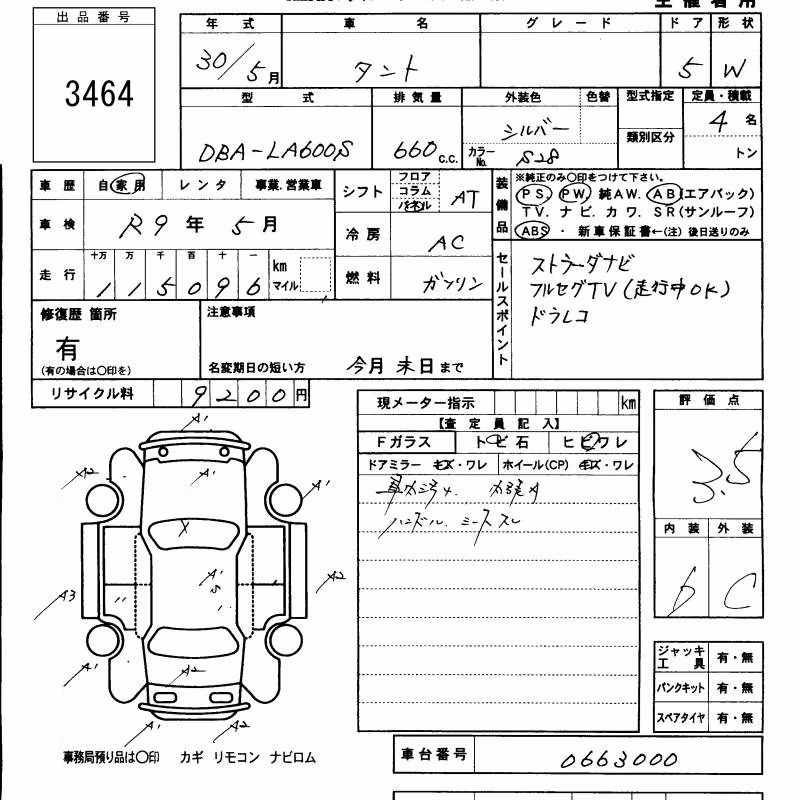 出品番号
3464
年式 車名 グレード ドア 形状
30/5月 タント 5 W
型式 排気量 外装色 色替 型式指定 定員・積載
DBA-LA600S 660c.c. シルバー カラーNo. S28 類別区分 4名 トン
車歴 自家用 レンタ 事業.営業車
車検 R9年5月
走行 十万 万 千 百 十 一
115096 km マイル
シフト フロア コラム パネル AT
冷房 AC
燃料 ガソリン
装備品 ※純正のみ〇印をつけて下さい。
PS. PW. 純AW. AB(エアバック)
TV. ナビ. カワ. SR(サンルーフ)
ABS ・ 新車保証書←(注) 後日送りのみ
セールスポイント
ストラーダナビ
フルセグTV(走行中OK)
ドラレコ
修復歴 箇所
有
(有の場合は〇印を)
注意事項
名変期日の短い方 今月末日まで
リサイクル料 9200円
現メーター指示 km
【査定員記入】
Fガラス トビ石 ヒビワレ
ドアミラー キズ・ワレ ホイール(CP) キズ・ワレ
ハンドル.
評価点
3.5
内装 外装
b C
A1
A2 A1 A1
X
A1 S
A3 〃 〃 A2
A1 A2 A1
A1 A2
ジャッキ工具 有・無
パンクキット 有・無
スペアタイヤ 有・無
事務局預り品は〇印 カギ リモコン ナビロム
車台番号 0663000